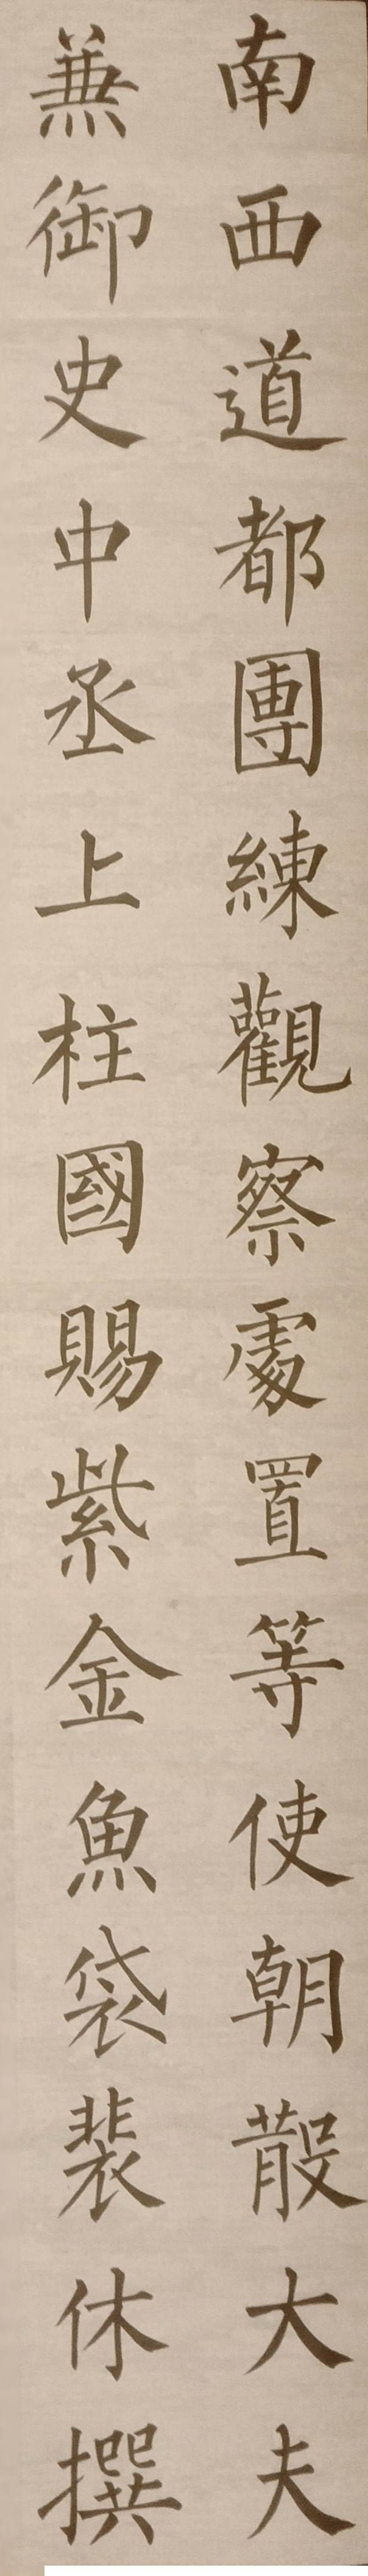 南西道都團練觀察處置等使朝散大夫
兼御史中丞上柱國賜紫金魚袋裴休撰